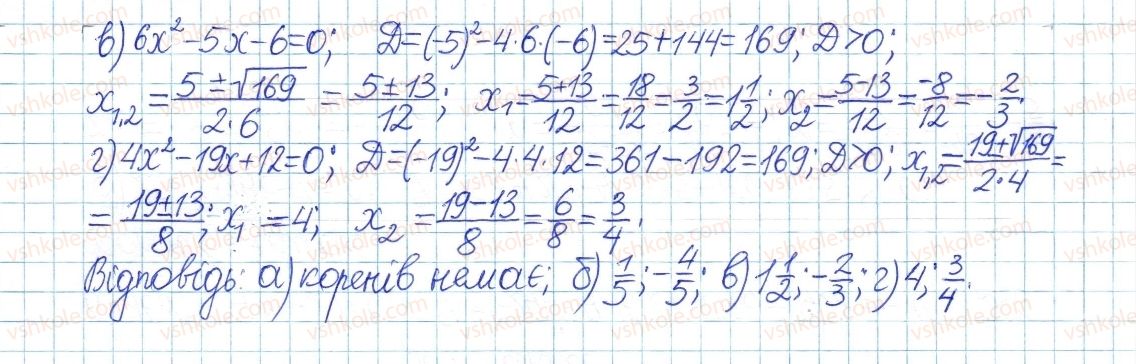 в) 6x² - 5x - 6 = 0; Д = (-5)² - 4·6·(-6) = 25 + 144 = 169; Д > 0;
x₁,₂ = (5 ± √169)/(2·6) = (5 ± 13)/12; x₁ = (5+13)/12 = 18/12 = 3/2 = 1 1/2; x₂ = (5-13)/12 = -8/12 = -2/3.
г) 4x² - 19x + 12 = 0; Д = (-19)² - 4·4·12 = 361 - 192 = 169; Д > 0; x₁,₂ = (19 ± √169)/(2·4) =
= (19 ± 13)/8; x₁ = 4; x₂ = (19-13)/8 = 6/8 = 3/4.
Відповідь: а) коренів немає; б) 1/5; -4/5; в) 1 1/2; -2/3; г) 4; 3/4.